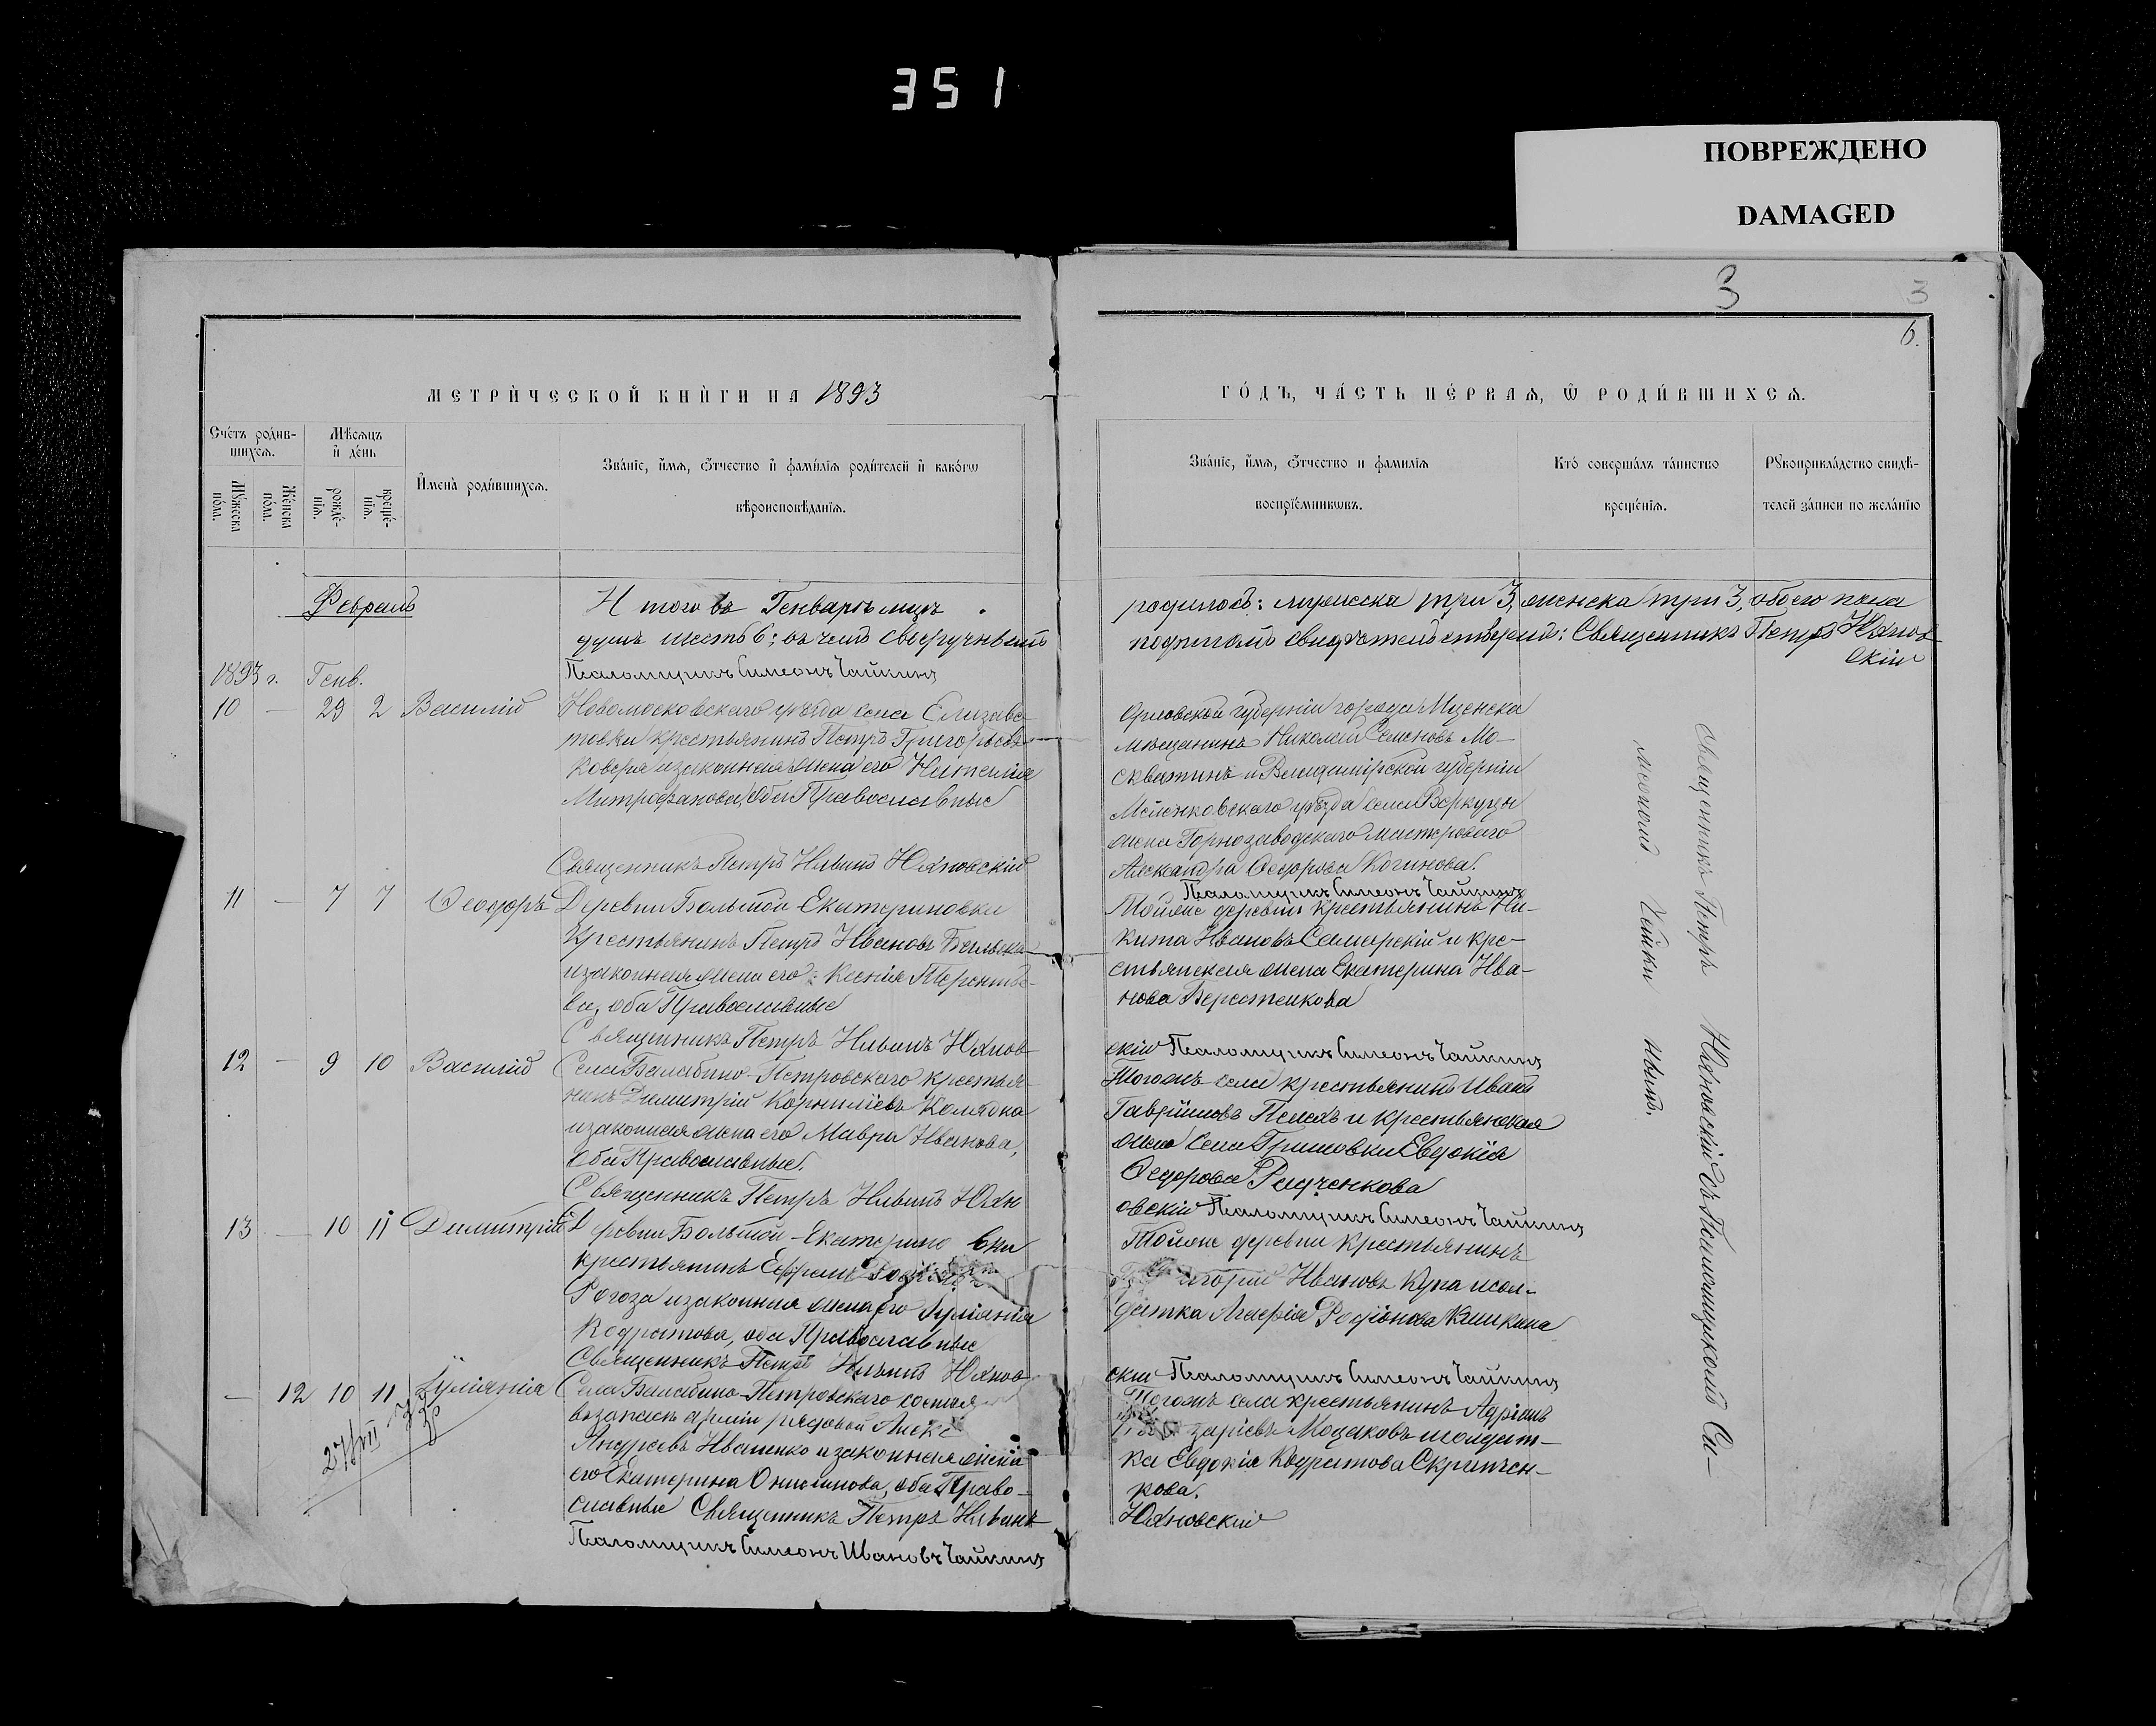 351
ПОВРЕЖДЕНО
DAMAGED
3
3
6.
МЕТРИ́ЧЕСКОЙ КНИ́ГИ НА 1893
ГО́ДЪ, ЧА́СТЬ ПЕ́РВАѦ, Ѿ РОДИ́ВШИХСѦ.
Сче́тъ роди́в-
шихсѧ.
Мѣ́сѧцъ
и҆ де́нь
Му́жеска
по́ла.
Же́нска
по́ла.
рожде́-
нїѧ.
креще́-
нїѧ.
И҆мена̀ роди́вшихсѧ.
Зва́нїе, и҆́мѧ, ѻ҆́тчество и҆ фами́лїѧ роди́телей и҆ како́гѡ
вѣроисповѣ́данїѧ.
Зва́нїе, и҆́мѧ, ѻ҆́тчество и фами́лїѧ
воспрїе́мникѡвъ.
Кто̀ соверша́лъ та́инство
креще́нїѧ.
Рꙋкоприкла́дство свидѣ́-
телей за́писи по жела́нїю
Февраль
Итого въ Генварѣ мцѣ
душъ шесть 6; въ чемъ сво
Псаломщикъ Симеонъ Чайкинъ
родилось: мужеска три 3, женска три 3, обоего пола
подписомъ свидѣтельствуемъ: Священникъ Петръ Юхнов-
скій
1893 г. Генв.
10 — 29 2 Василій
Новомосковскаго уѣзда села Елизаве-
товки крестьянинъ Петръ Григорьевъ
Коверя и законная жена его Наталія
Митрофанова, оба Православные
Священникъ Петръ Нивинъ Юхновскій
Орловской губерніи города Мценска
мѣщанинъ Николай Семеновъ Мо-
сквитинъ и Владимірской губерніи
Меленковскаго уѣзда села
жена Горнозаводскаго мастероваго
Александра Ѳедорова Когинова.
Псаломщикъ Симеонъ Чайкинъ
11 — 7 7 Ѳеодоръ
Деревни Большой-Екатериновки
Крестьянинъ Петръ Ивановъ
и законная жена его Ксенія Терентье-
ва, оба Православные
Священникъ Петръ Нивинъ Юхнов-
Тойже деревни крестьянинъ Ни-
кита Ивановъ Самарскій и кре-
стьянская жена Екатерина Ива-
нова Берестенкова
скій Псаломщикъ Симеонъ Чайкинъ
12 — 9 10 Василій
Села Балабино-Петровскаго крестья-
нинъ Димитрій Корниліевъ Колядка
и законная жена его Мавра Иванова,
оба Православные.
Священникъ Петръ Нивинъ Юхн
Тогожъ села крестьянинъ Иванъ
Гавріиловъ и крестьянская
жена села Гришовки Евдокія
Ѳедорова Радченкова
овскій Псаломщикъ Симеонъ Чайкинъ
13 — 10 11 Димитрій
Деревни Большой-Екатерино вки
крестьянинъ Ефремъ
Рогоза и законная жена его Іуліанія
Кодратова, оба Православные
Священникъ Петръ Нивинъ Юхнов-
Тойже деревни крестьянинъ
Григорій Ивановъ Купа и сол-
датка Агафія Родіонова Кишкина
скій Псаломщикъ Симеонъ Чайкинъ
— 12 10 11 Іуліанія
Села Балабино-Петровскаго состоя
въ запасѣ арміи рядовой Алекс
Андреевъ Иваненко и законная жена
его Екатерина Онисимова, оба Право-
славные Священникъ Петръ Нивинъ
Псаломщикъ Симеонъ Ивановъ Чайкинъ
Тогожъ села крестьянинъ Адріанъ
заріевъ Моцаковъ и солдат-
ка Евдокія Кодратова Скрипчен-
кова.
Юхновскій
Священникъ Петръ Юхновскій съ Псаломщикомъ Си-
меономъ